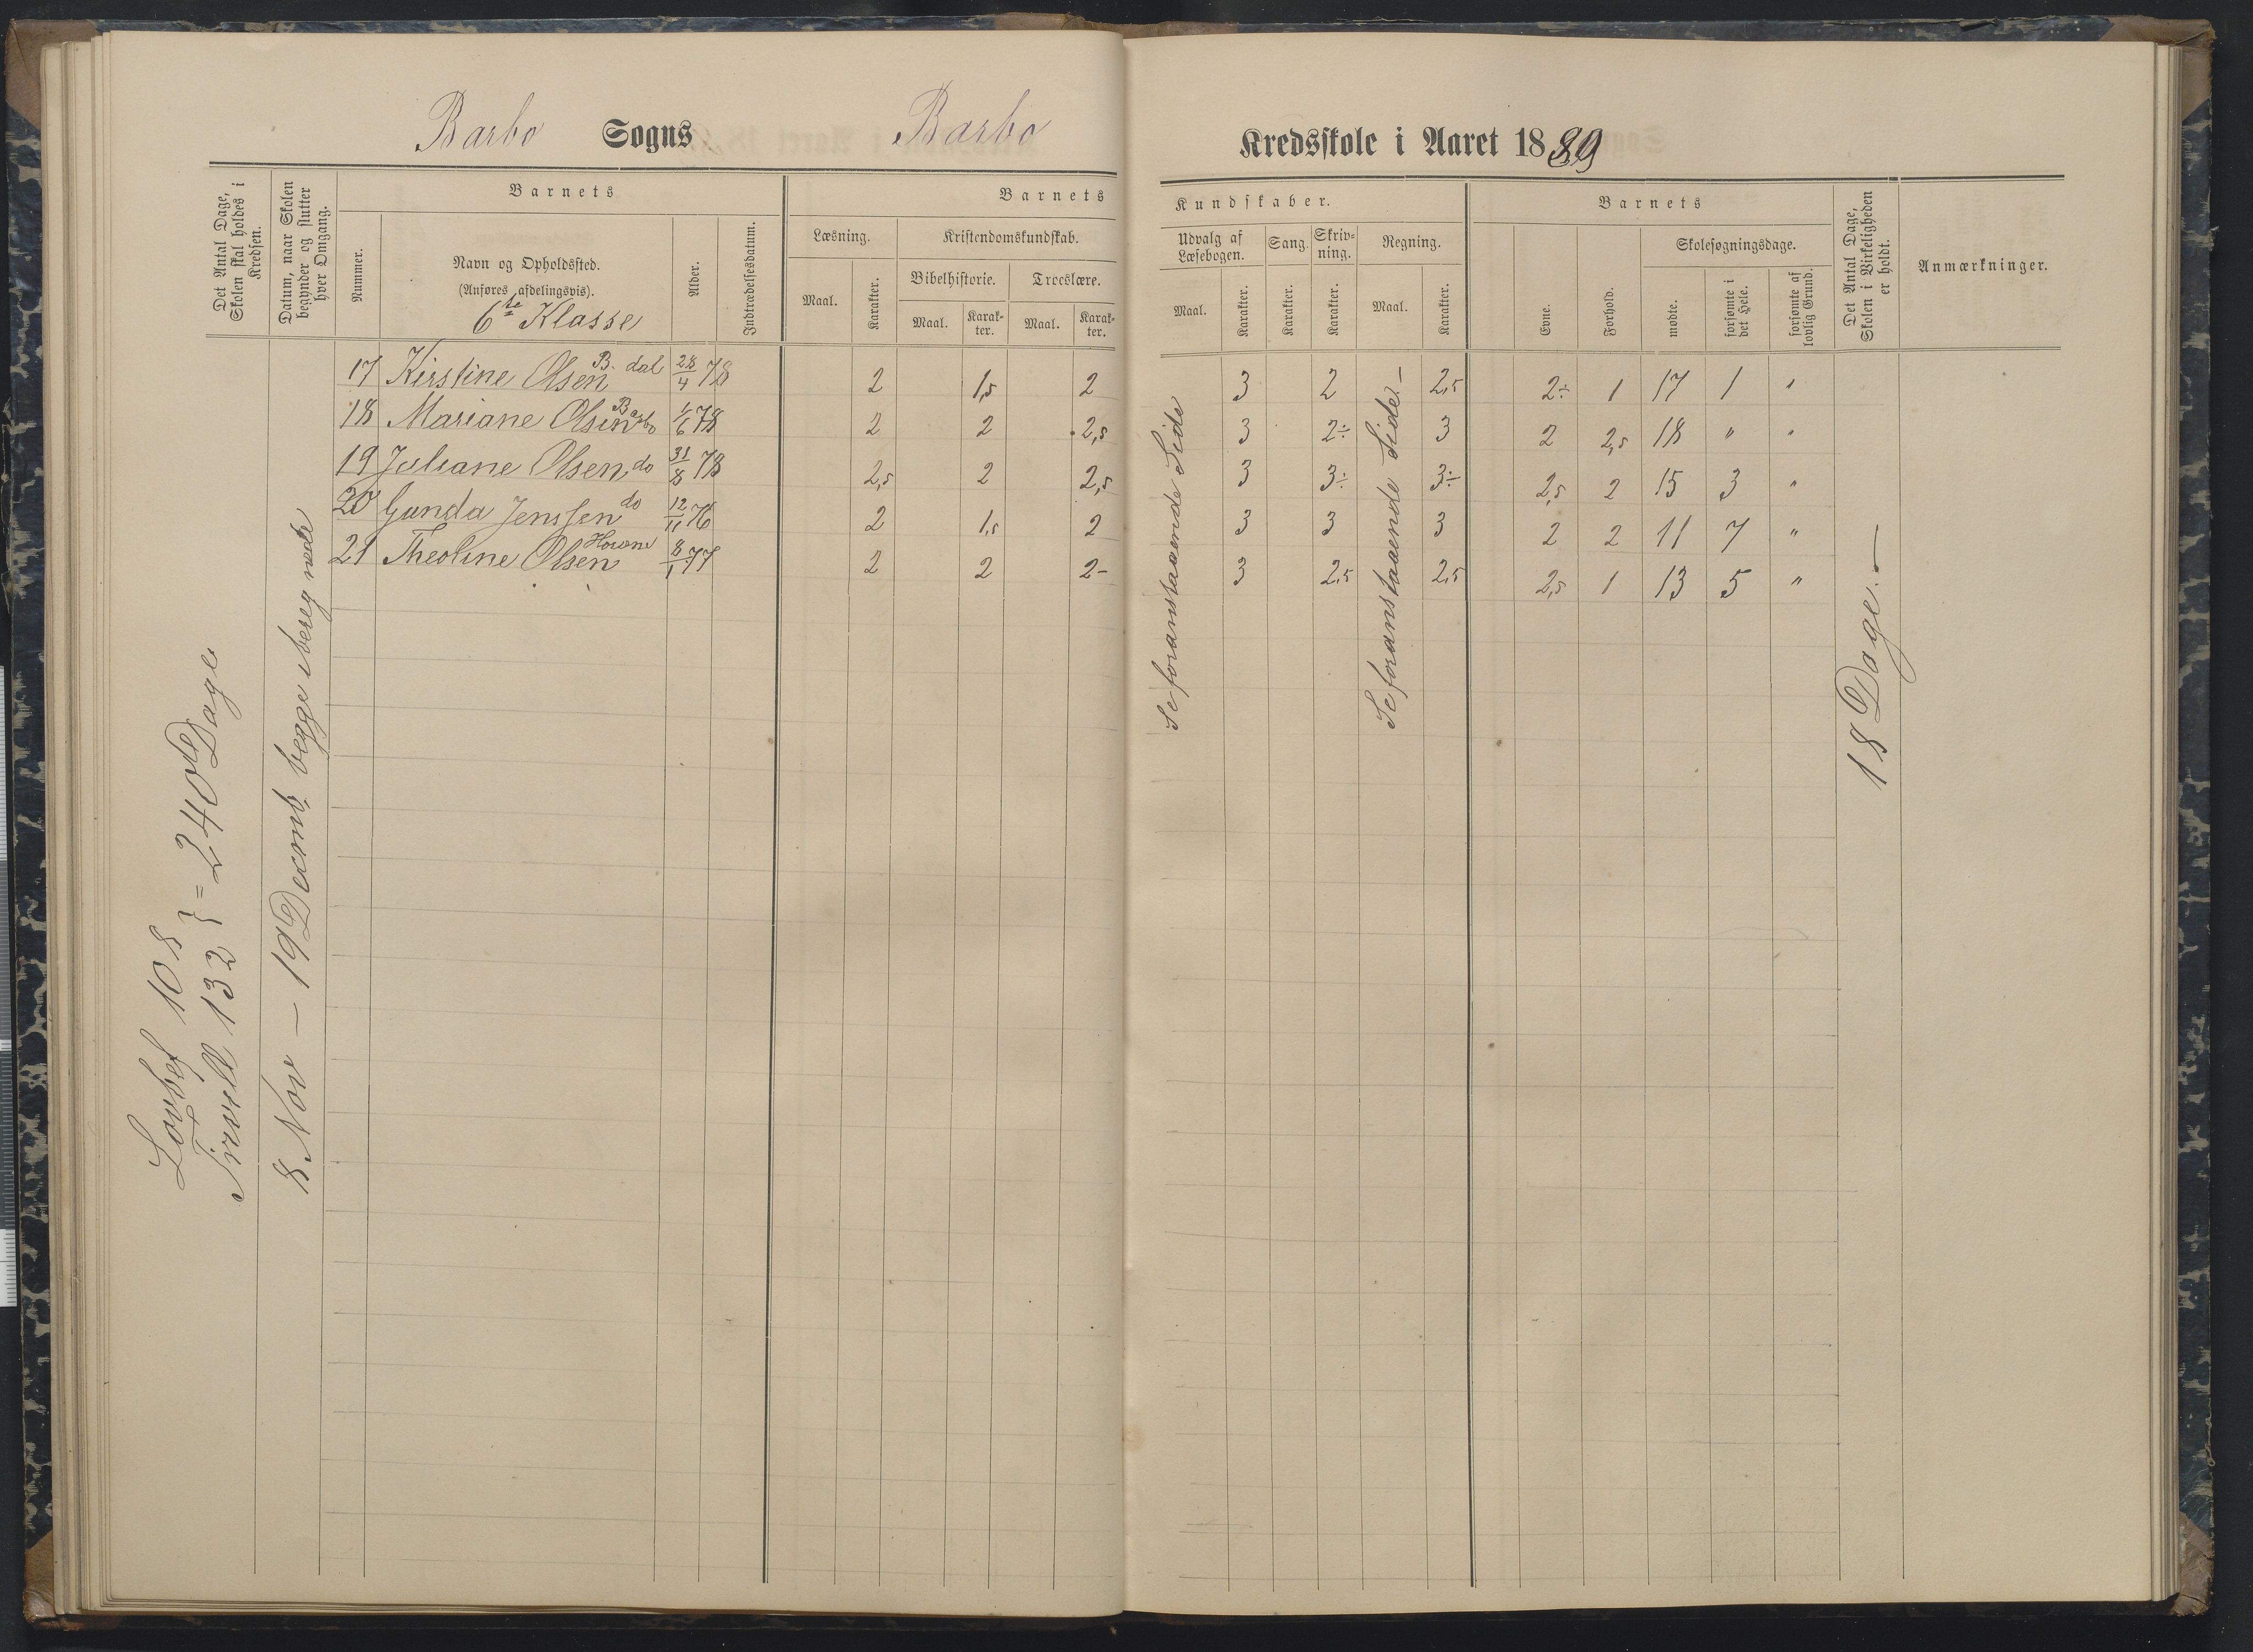 Barbo Sogns Barbo Kredsskole i Aaret 1889
Det Antal Dage, Skolen skal holdes i Kredsen.
Datum, naar Skolen begynder og slutter hver Omgang.
Barnets
Nummer.
Navn og Opholdssted.
(Anføres afdelingsvis).
6te Klasse
Alder.
Indtrædelsesdatum.
Barnets Kundskaber.
Læsning.
Maal. Karakter.
Kristendomskundskab.
Bibelhistorie. Troeslære.
Maal. Karakter. Maal. Karakter.
Udvalg af Læsebogen.
Maal. Karakter.
Sang.
Karakter.
Skrivning.
Karakter.
Regning.
Maal. Karakter.
Barnets
Evne.
Forhold.
Skolesøgningsdage.
mødte.
forsømte i det Hele.
forsømte af lovlig Grund.
Det Antal Dage, Skolen i Virkeligheden er holdt.
Anmærkninger.
17 Kirstine Olsen B. dal 28/4 78 2 1,5 2 3 2 2,5 2÷ 1 17 1 "
18 Mariane Olsen Barbo 1/6 78 2 2 2,5 3 2÷ 3 2 2,5 18 " "
19 Juliane Olsen do 31/8 78 2,5 2 2,5 3 3÷ 3÷ 2,5 2 15 3 "
20 Gunda Jenssen do 12/11 76 2 1,5 2 3 3 3 2 2 11 7 "
21 Theoline Olsen 8/1 77 2 2 2- 3 2,5 2,5 2,5 1 13 5 "
Lovbef 108
Frivill 132 } = 240 Dage
8 Nov – 19 Decemb. begge iberegnede
Se foranstaaende Side
Se foranstaaende Side. –
18 Dage. –